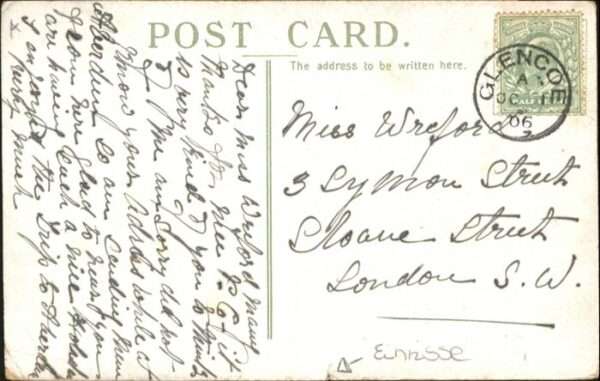 POST CARD.
The address to be written here.
GLENCOE
A
OC 11
06
Dear Miss Wreford Many
thanks for nice P.C. it
is very kind of you to think
of me am sorry did not
know your address while at
Aberdeen so am sending
from here glad to hear you
are having such a nice
I enjoyed the trip to
very much
Miss Wreford
3 Symon Street
Sloane Street
London S.W.